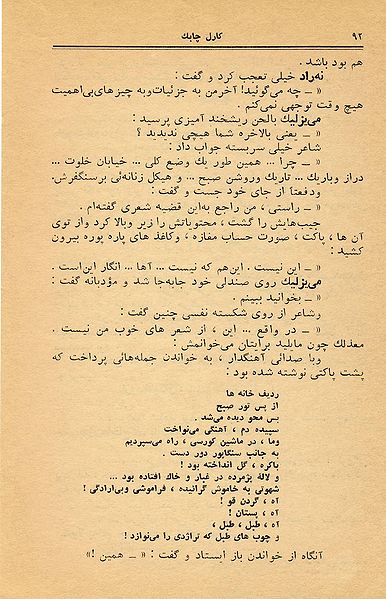 ۹۲
کارل چاپک
هم بود باشد .
نه‌راد خیلی تعجب کرد و گفت :
« ــ چه می‌گوئید! آخرمن به جزئیات‌وبه چیزهای‌بی‌اهمیت
هیچ وقت توجهی نمی‌کنم .
می‌یزلیك بالحن ریشخند آمیزی پرسید :
« ــ یعنی بالاخره شما هیچی ندیدید ؟
شاعر خیلی سربسته جواب داد :
« ــ چرا ... همین طور یك وضع کلی ... خیابان خلوت ...
دراز وباریك ... تاریك وروشن صبح ... و هیکل زنانه‌ئی برسنگفرش.
ودفعتاً از جای خود جست و گفت :
« ــ راستی ، من راجع به‌این قضیه شعری گفته‌ام .
جیب‌هایش را گشت ، محتویاتش را زیر وبالا کرد واز توی
آن ها ، پاکت ، صورت حساب مغازه ، وکاغذ های پاره پوره بیرون
کشید :
« ــ این نیست . این‌هم که نیست ... آها ... انگار این‌است .
می‌یزلیك روی صندلی خود جابه‌جا شد و مؤدبانه گفت :
« ــ بخوانید ببینم .
وشاعر از روی شکسته نفسی چنین گفت :
« ــ در واقع ... این ، از شعر های خوب من نیست .
معذلك چون مایلید برایتان می‌خوانمش :
وبا صدائی آهنگدار ، به خواندن جمله‌هائی پرداخت که
پشت پاکتی نوشته شده بود :
ردیف خانه ها
از پس نور صبح
پس محو دیده می‌شد .
سپیده دم ، آهنگی می‌نواخت
وما ، در ماشین کورسی ، راه می‌سپردیم
به جانب سنگاپور دور دست .
باکره ، گل انداخته بود !
و لاله پژمرده در غبار و خاك افتاده بود ...
شهوتی به خاموش گرائیده ، فراموشی وبی‌ارادگی !
آه ، گردن قو !
آه ، پستان !
آه ، طبل ، طبل ،
و چوب های طبل که تراژدی را می‌نوازد !
آنگاه از خواندن باز ایستاد و گفت : « ــ همین !»